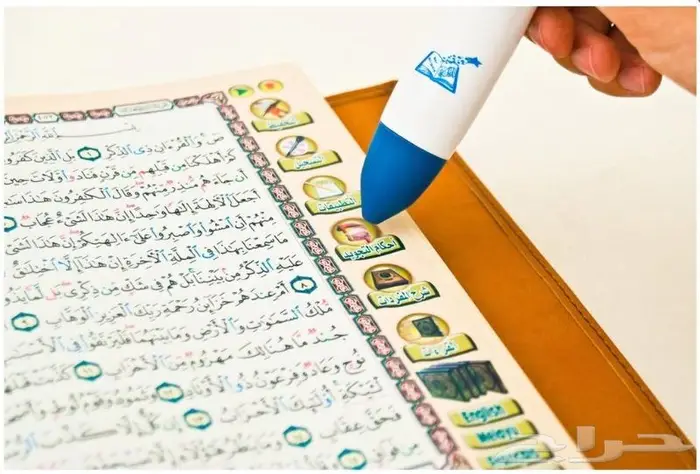 صٓ وَالْقُرْءَانِ ذِى الذِّكْرِ ١ بَلِ الَّذِينَ كَفَرُوا
أَهْلَكْنَا مِن قَبْلِهِم مِّن قَرْنٍ فَنَادَوا وَّلَاتَ حِينَ
جَآءَهُم مُّنذِرٌ مِّنْهُمْ وَقَالَ الْكَٰفِرُونَ هَٰذَا
أَجَعَلَ الْءَالِهَةَ إِلَٰهًا وَٰحِدًا إِنَّ هَٰذَا لَشَىْءٌ عُجَابٌ
مِنْهُمْ أَنِ امْشُوا وَاصْبِرُوا عَلَىٰٓ ءَالِهَتِكُمْ إِنَّ هَٰذَا لَشَىْءٌ
مَا سَمِعْنَا بِهَٰذَا فِى الْمِلَّةِ الْءَاخِرَةِ إِنْ هَٰذَآ إِلَّا اخْتِلَٰقٌ
عَلَيْهِ الذِّكْرُ مِنۢ بَيْنِنَا بَلْ هُمْ فِى شَكٍّ مِّن ذِكْرِى بَل لَّمَّا ٨
أَمْ عِندَهُمْ خَزَآئِنُ رَحْمَةِ رَبِّكَ الْعَزِيزِ الْوَهَّابِ ٩
مُّلْكُ السَّمَٰوَٰتِ وَالْأَرْضِ وَمَا بَيْنَهُمَا فَلْيَرْتَقُوا فِى
جُندٌ مَّا هُنَالِكَ مَهْزُومٌ مِّنَ الْأَحْزَابِ ١١ كَذَّبَتْ
نُوحٍ وَعَادٌ وَفِرْعَوْنُ ذُو الْأَوْتَادِ ١٢ وَثَمُودُ وَقَوْمُ لُوطٍ
لْـَٔيْكَةِ أُولَٰٓئِكَ الْأَحْزَابُ ١٣ إِن كُلٌّ إِلَّا كَذَّبَ
فَحَقَّ عِقَابِ ١٤ وَمَا يَنظُرُ هَٰٓؤُلَآءِ
مِن فَوَاقٍ
التسجيل
التطبيقات
أحكام التجويد
شرح المفردات
القراءات
English
Melayu
حراج